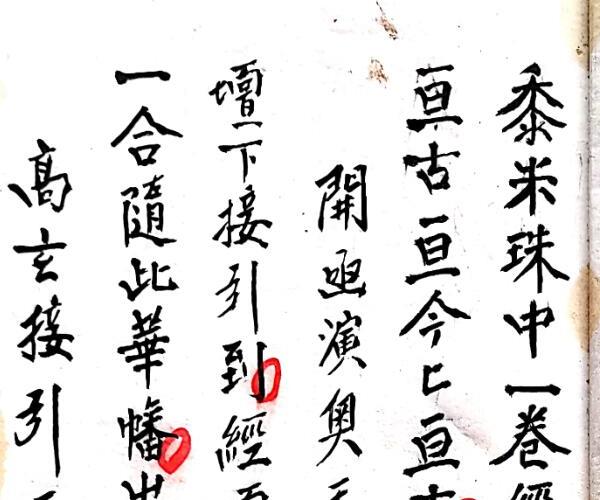 黍米珠中一卷經
亘古亘今匕亘古
開函演奧
壇下接引到經
一合隨此華幡出
高玄接引